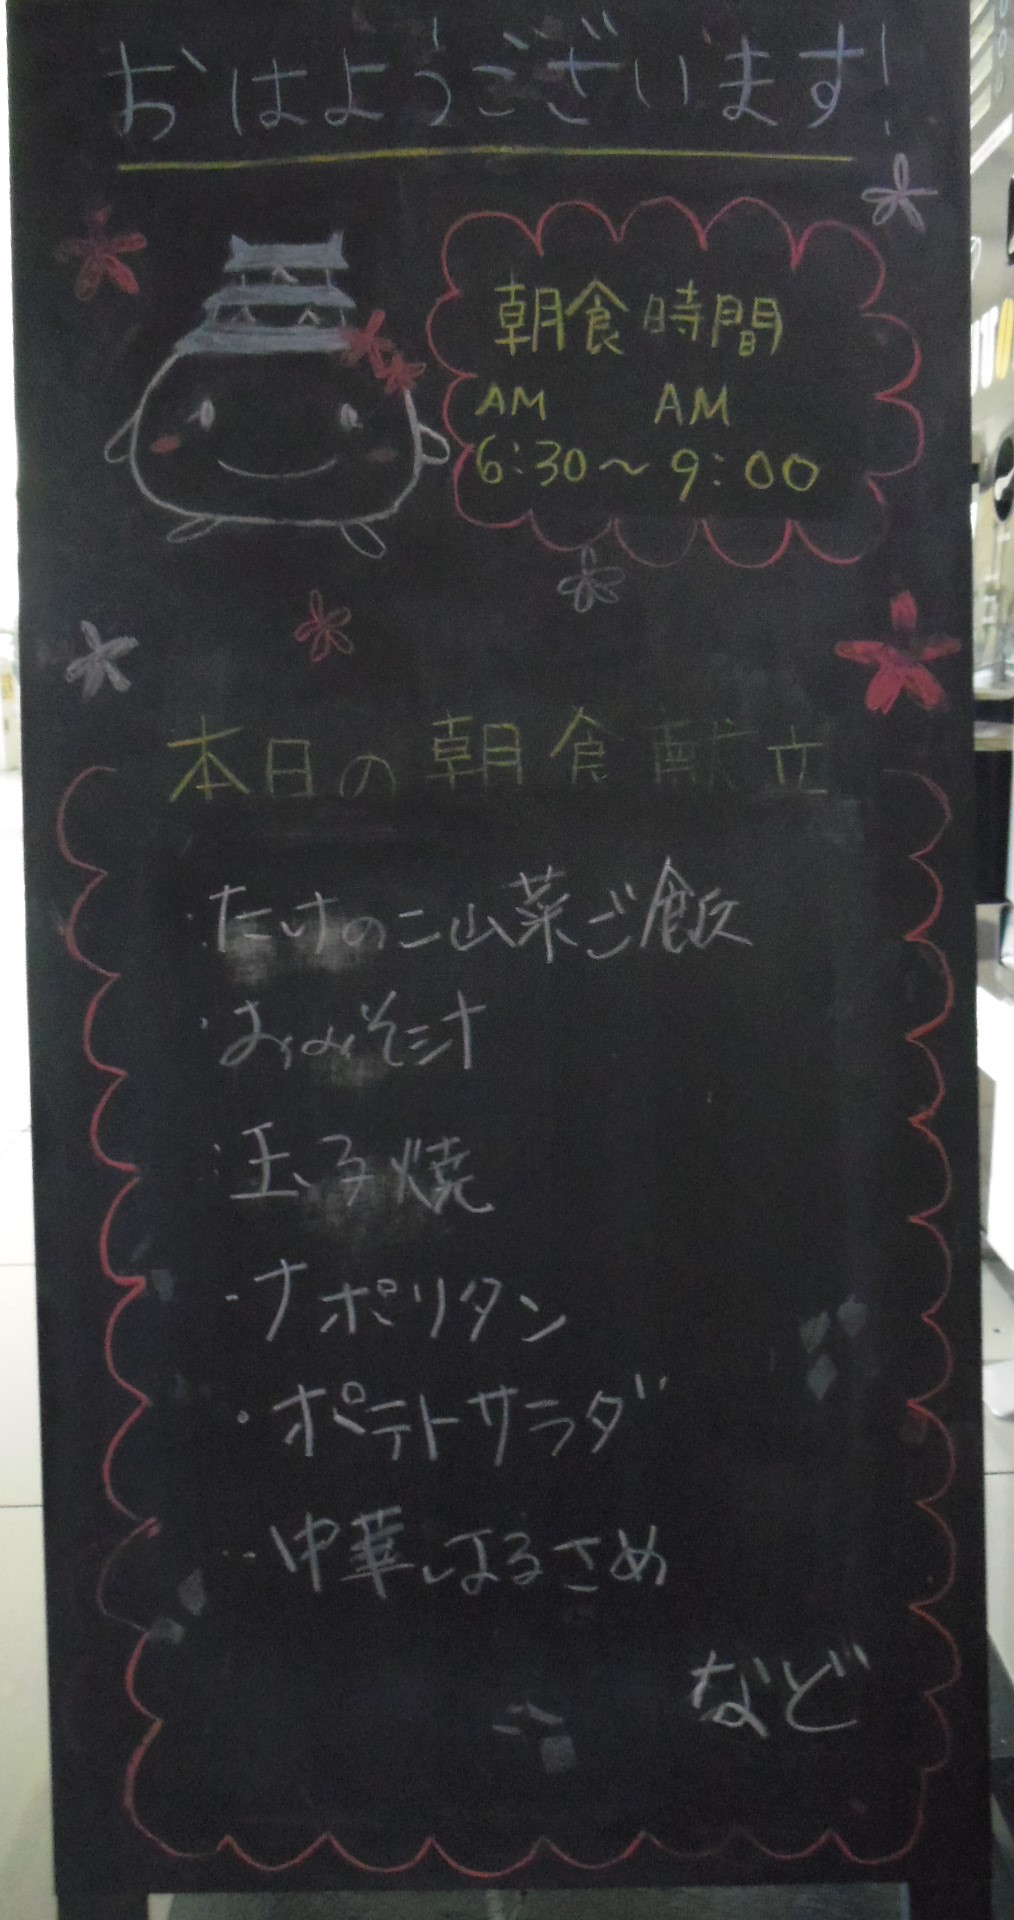 おはようございます!
朝食時間
AM AM
6:30〜9:00
本日の朝食献立
・たけのこ山菜ご飯
・おみそ汁
・玉子焼
・ナポリタン
・ポテトサラダ
・中華はるさめ
など